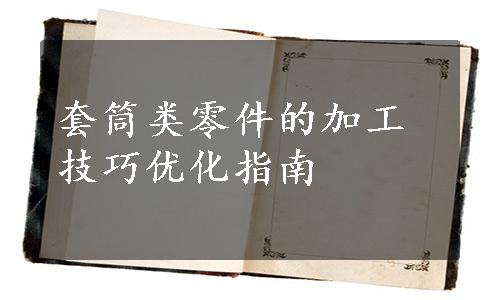 套筒类零件的加工
技巧优化指南